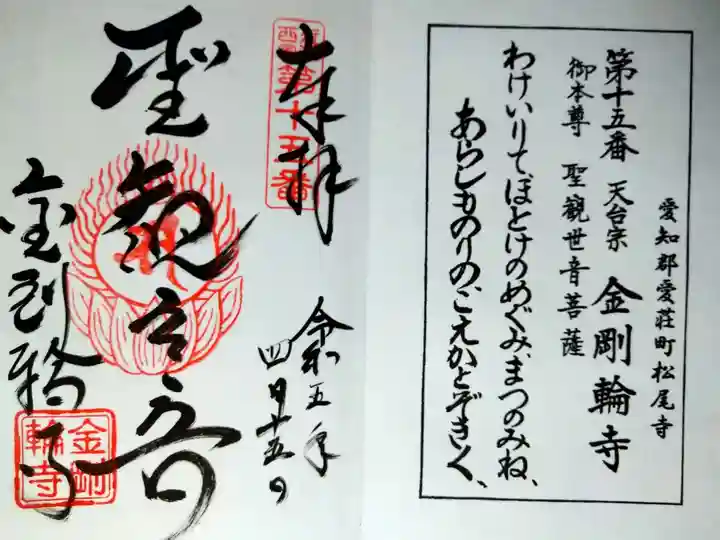 愛知郡愛荘町松尾寺
第十五番 天台宗 金剛輪寺
御本尊 聖観世音菩薩
わけいりてほとけのめぐみ、まつのみね、
あらしものりのごえかとぞきく、
奉拝
第十五番
令和五年
四月十五日
聖観世音
金剛輪寺
金剛
輪寺